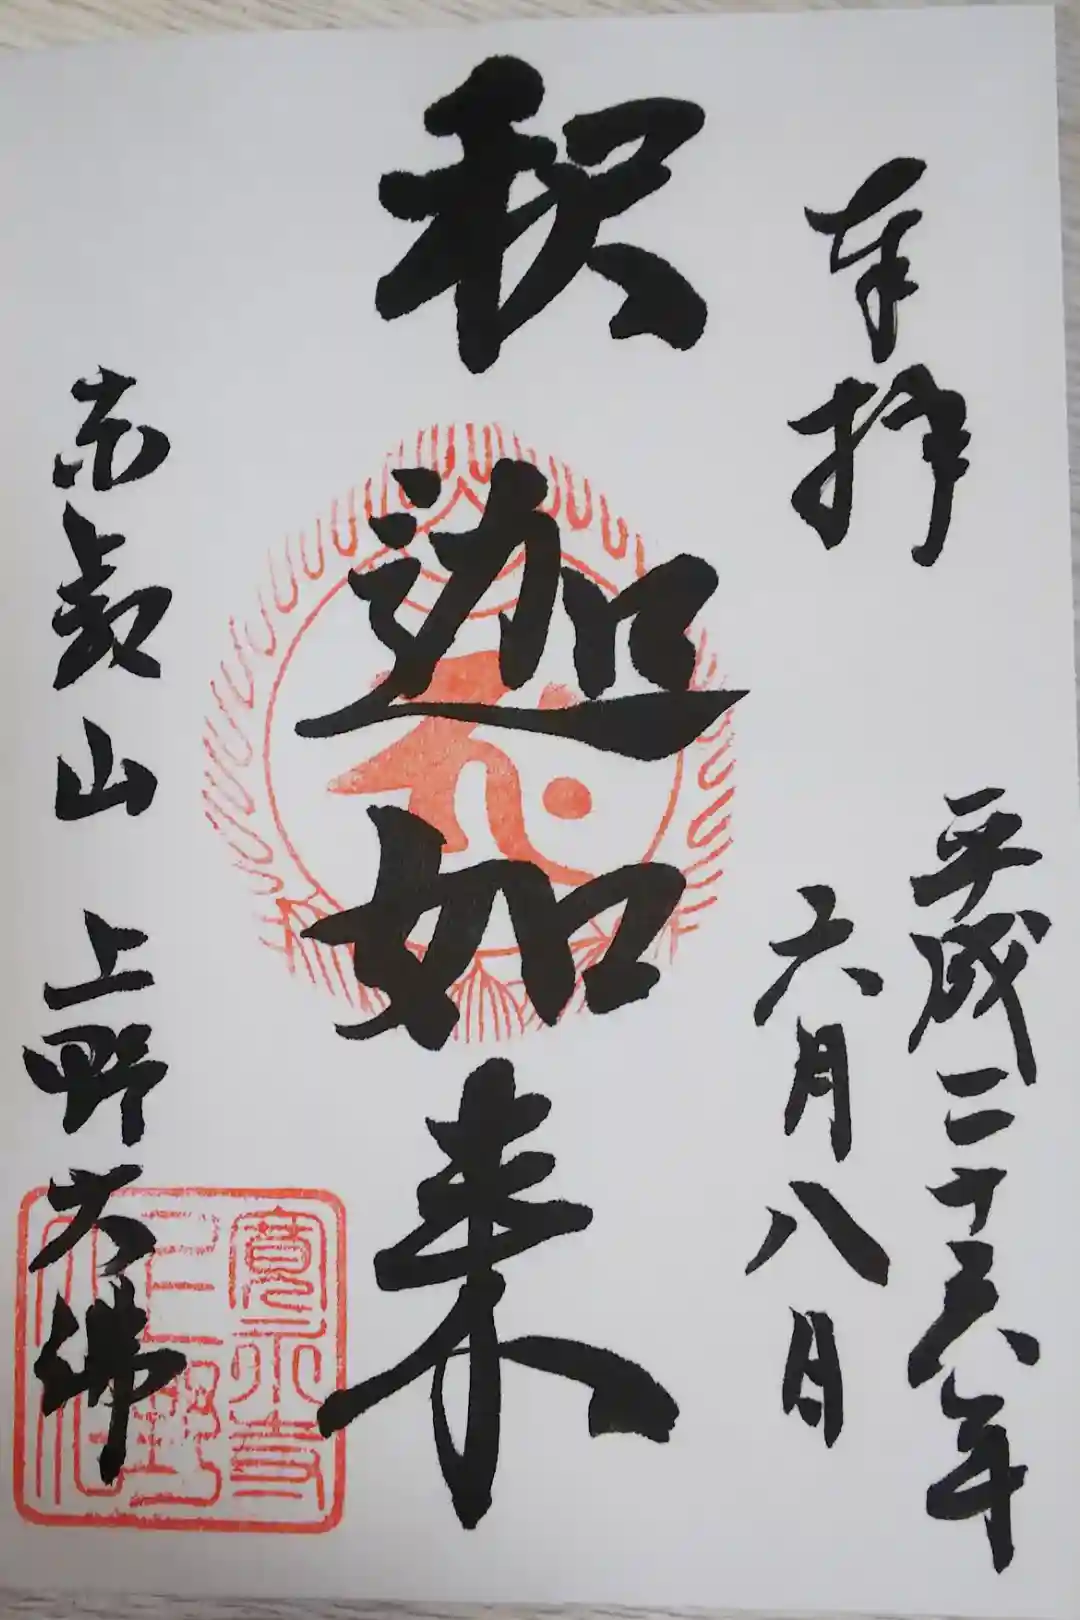 奉拝
平成二十六年
六月八日
釈迦如来
東叡山 上野大佛
寛永寺
上野
大佛